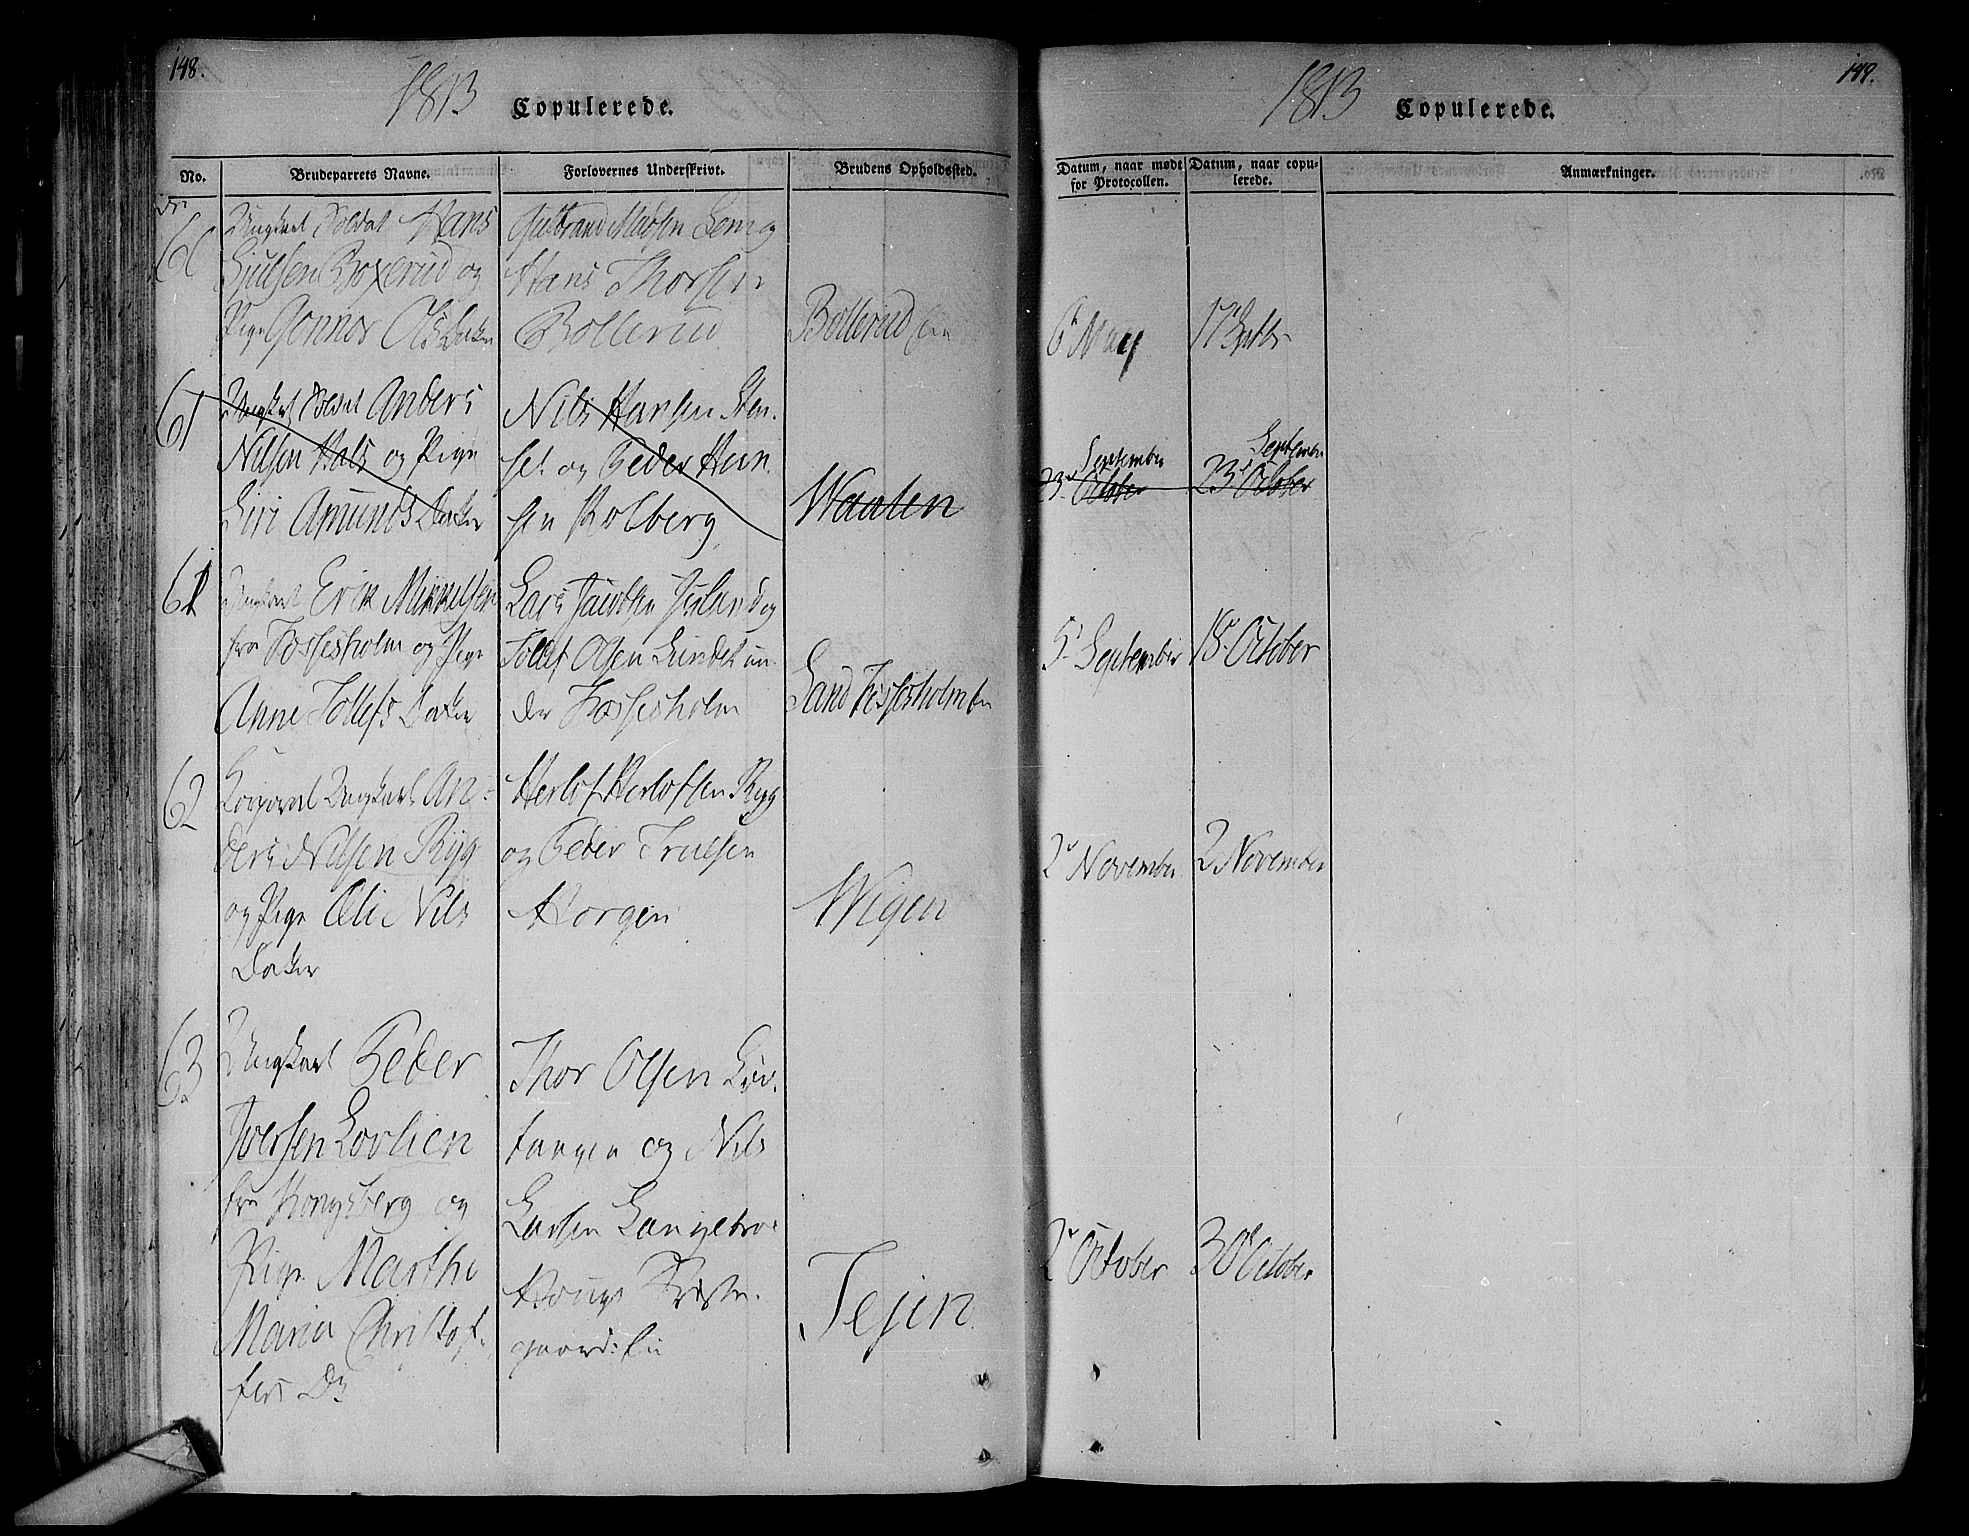 148.
1813 Copulerede.
No. Brudeparrets Navne. Forlovernes Underskrivt. Brudens Opholdssted.
Ungkarl Soldat Hans
og
Pige Gonnor Ols Datter
Gulbrand Madsen
Hans Thorsen
Bollerud
Bollerud
61
Ungkarl Soldat Anders
Nilsen Hals og Pige
Siri Amunds Datter
Nils Hansen Sten-
set og Peder Han-
sen Kolberg
Waalen
61
Ungkarl Erik Mikkelsen
fra Fossesholm og Pige
Anne Tollefs Datter
Lars Jacobsen og
Tollef Olsen Lindet un-
der Fossesholm
Sand Fossesholm
62
Korporal Ungkarl An-
ders Nilsen Ryg
og Pige Eli Nils
Datter
Herlof Herlofsen Ryg
og Peder Truelsen
Horgen
Wegen
63
Ungkarl Peder
Iversen Lovlien
fra Kongsberg og
Pige Marthe
Maria Christof-
fers Dr
Thor Olsen
tangen og Nils
Larsen
Tejen
149.
1813 Copulerede.
Datum, naar mødt for Protocollen. Datum, naar copu-lerede. Anmærkninger.
6 May 17 Septbr
September September
23 October 23 October
5 September 18 October
2 November 2 November
2 October 30 October